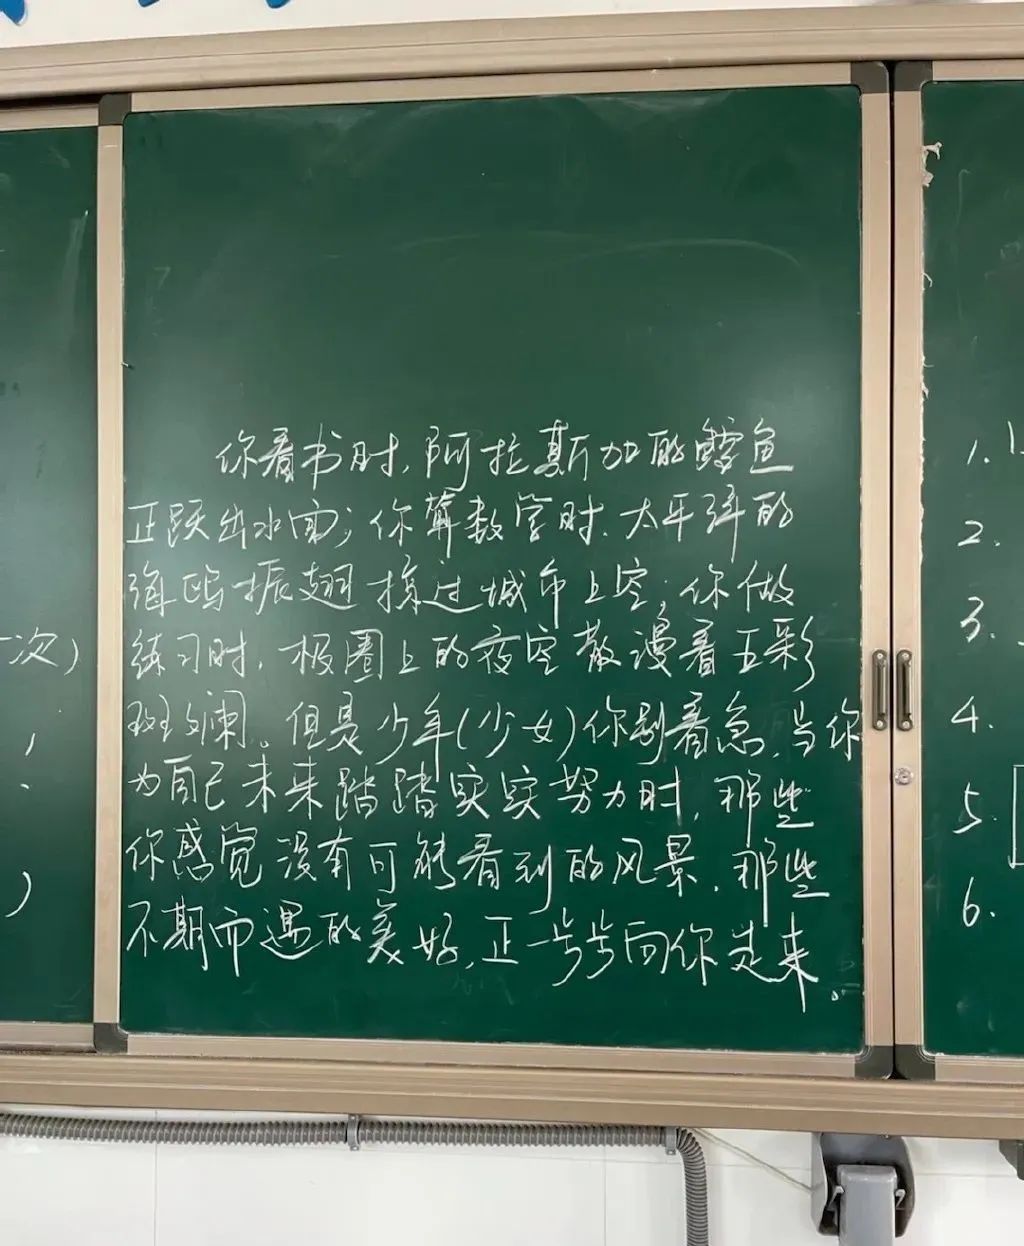 你看书时，阿拉斯加的鳕鱼
正跃出水面；你算数学时，太平洋的
海鸥振翅掠过城市上空；你做
练习时，极圈上的夜空散漫着五彩
斑斓。但是少年(少女)你别着急，当你
为自己未来踏踏实实努力时，那些
你感觉没有可能看到的风景，那些
不期而遇的美好，正一步步向你走来。
次)
)
1.
2.
3.
4.
5.
6.